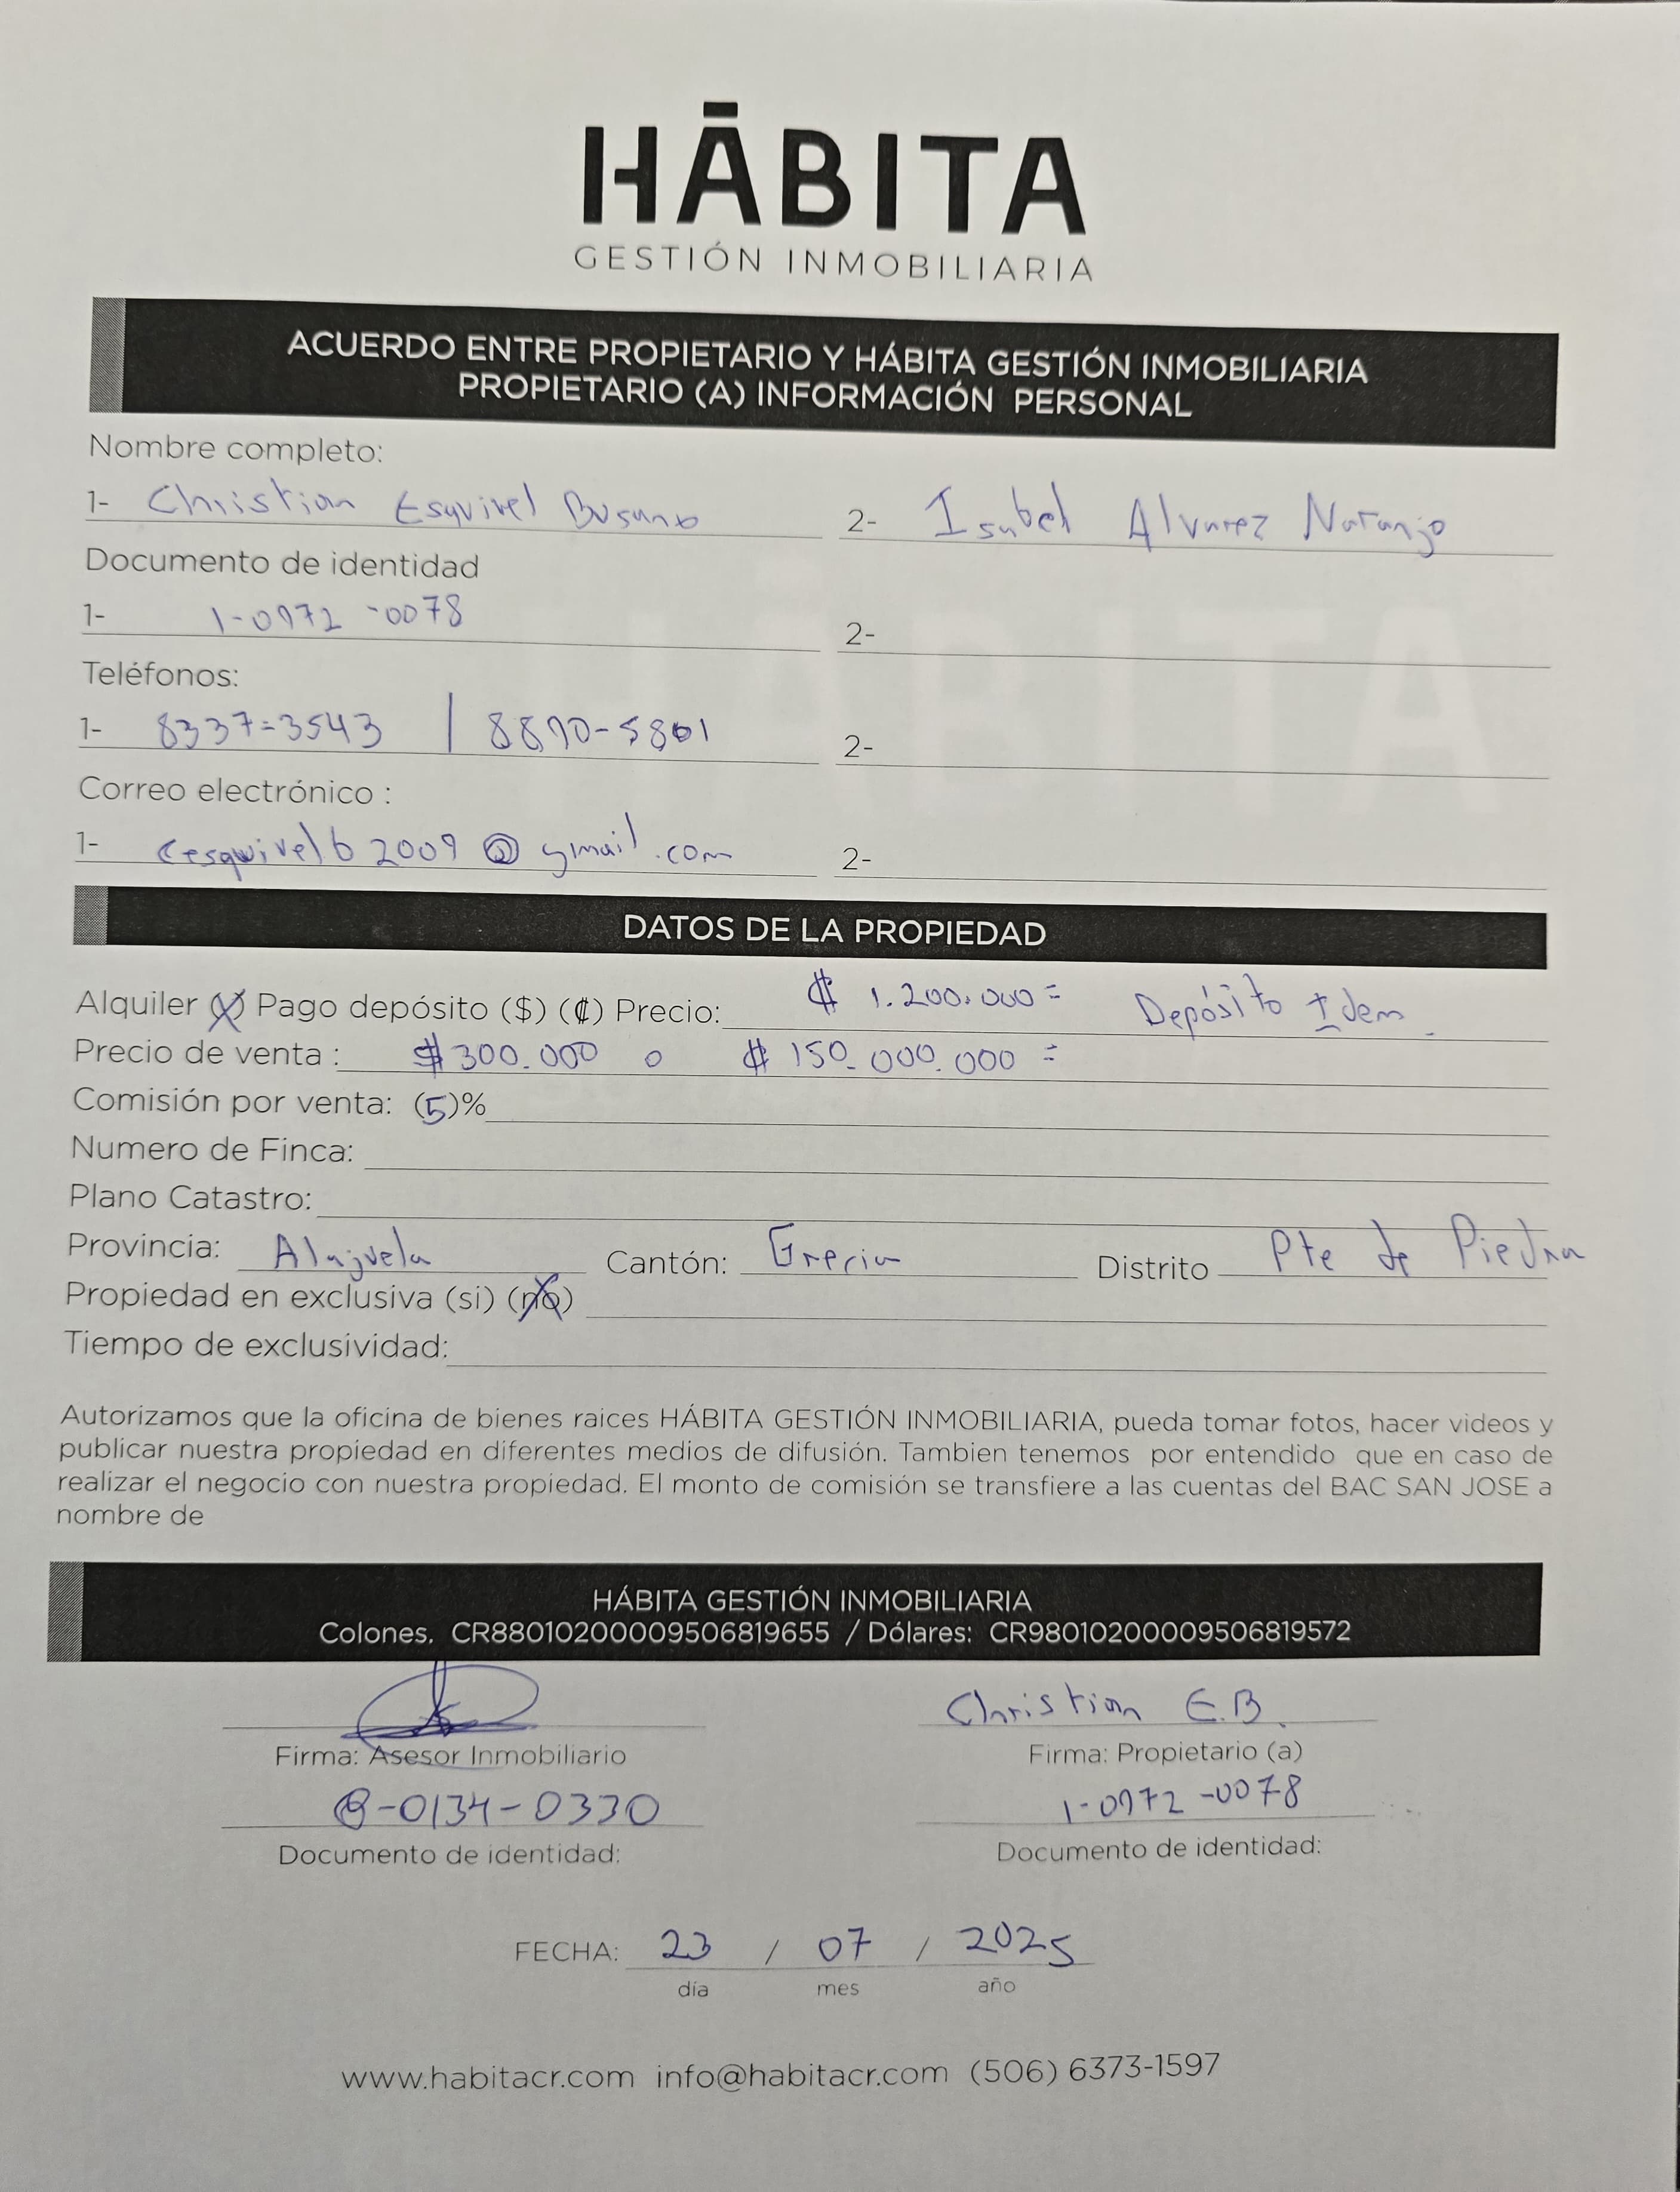 HĀBITA
GESTIÓN INMOBILIARIA
ACUERDO ENTRE PROPIETARIO Y HÁBITA GESTIÓN INMOBILIARIA
PROPIETARIO (A) INFORMACIÓN PERSONAL
Nombre completo:
1- Christian Esquivel 2- Isabel Alvarez Naranjo
Documento de identidad
1- 1-0972-0078 2-
Teléfonos:
1- 8337-3543 | 8890-5801 2-
Correo electrónico :
1- cesquivelb2009@gmail.com 2-
DATOS DE LA PROPIEDAD
Alquiler (X) Pago depósito ($) (₡) Precio: ₡ 1.200.000= Depósito Idem
Precio de venta : $300.000 o ₡ 150.000.000=
Comisión por venta: (5)%
Numero de Finca:
Plano Catastro:
Provincia: Alajuela Cantón: Grecia Distrito Pte de Piedra
Propiedad en exclusiva (si) (no)
Tiempo de exclusividad:
Autorizamos que la oficina de bienes raices HÁBITA GESTIÓN INMOBILIARIA, pueda tomar fotos, hacer videos y
publicar nuestra propiedad en diferentes medios de difusión. Tambien tenemos por entendido que en caso de
realizar el negocio con nuestra propiedad. El monto de comisión se transfiere a las cuentas del BAC SAN JOSE a
nombre de
HÁBITA GESTIÓN INMOBILIARIA
Colones. CR88010200009506819655 / Dólares: CR98010200009506819572
Christian E.B.
Firma: Asesor Inmobiliario Firma: Propietario (a)
8-0134-0330 1-0972-0078
Documento de identidad: Documento de identidad:
FECHA: 23 / 07 / 2025
día mes año
www.habitacr.com info@habitacr.com (506) 6373-1597